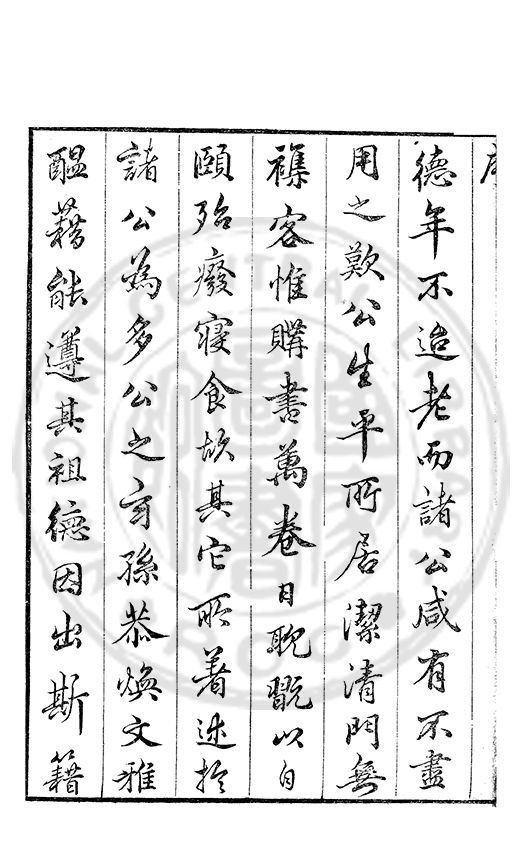 序
德年不迨老而諸公咸有不盡
用之歎公生平所居潔清門無
襍客惟購書萬卷日耽翫以自
頤殆癈寢食故其它所着述於
諸公為多公之玄孫恭煥文雅
醞藉能遵其祖德因出斯籍